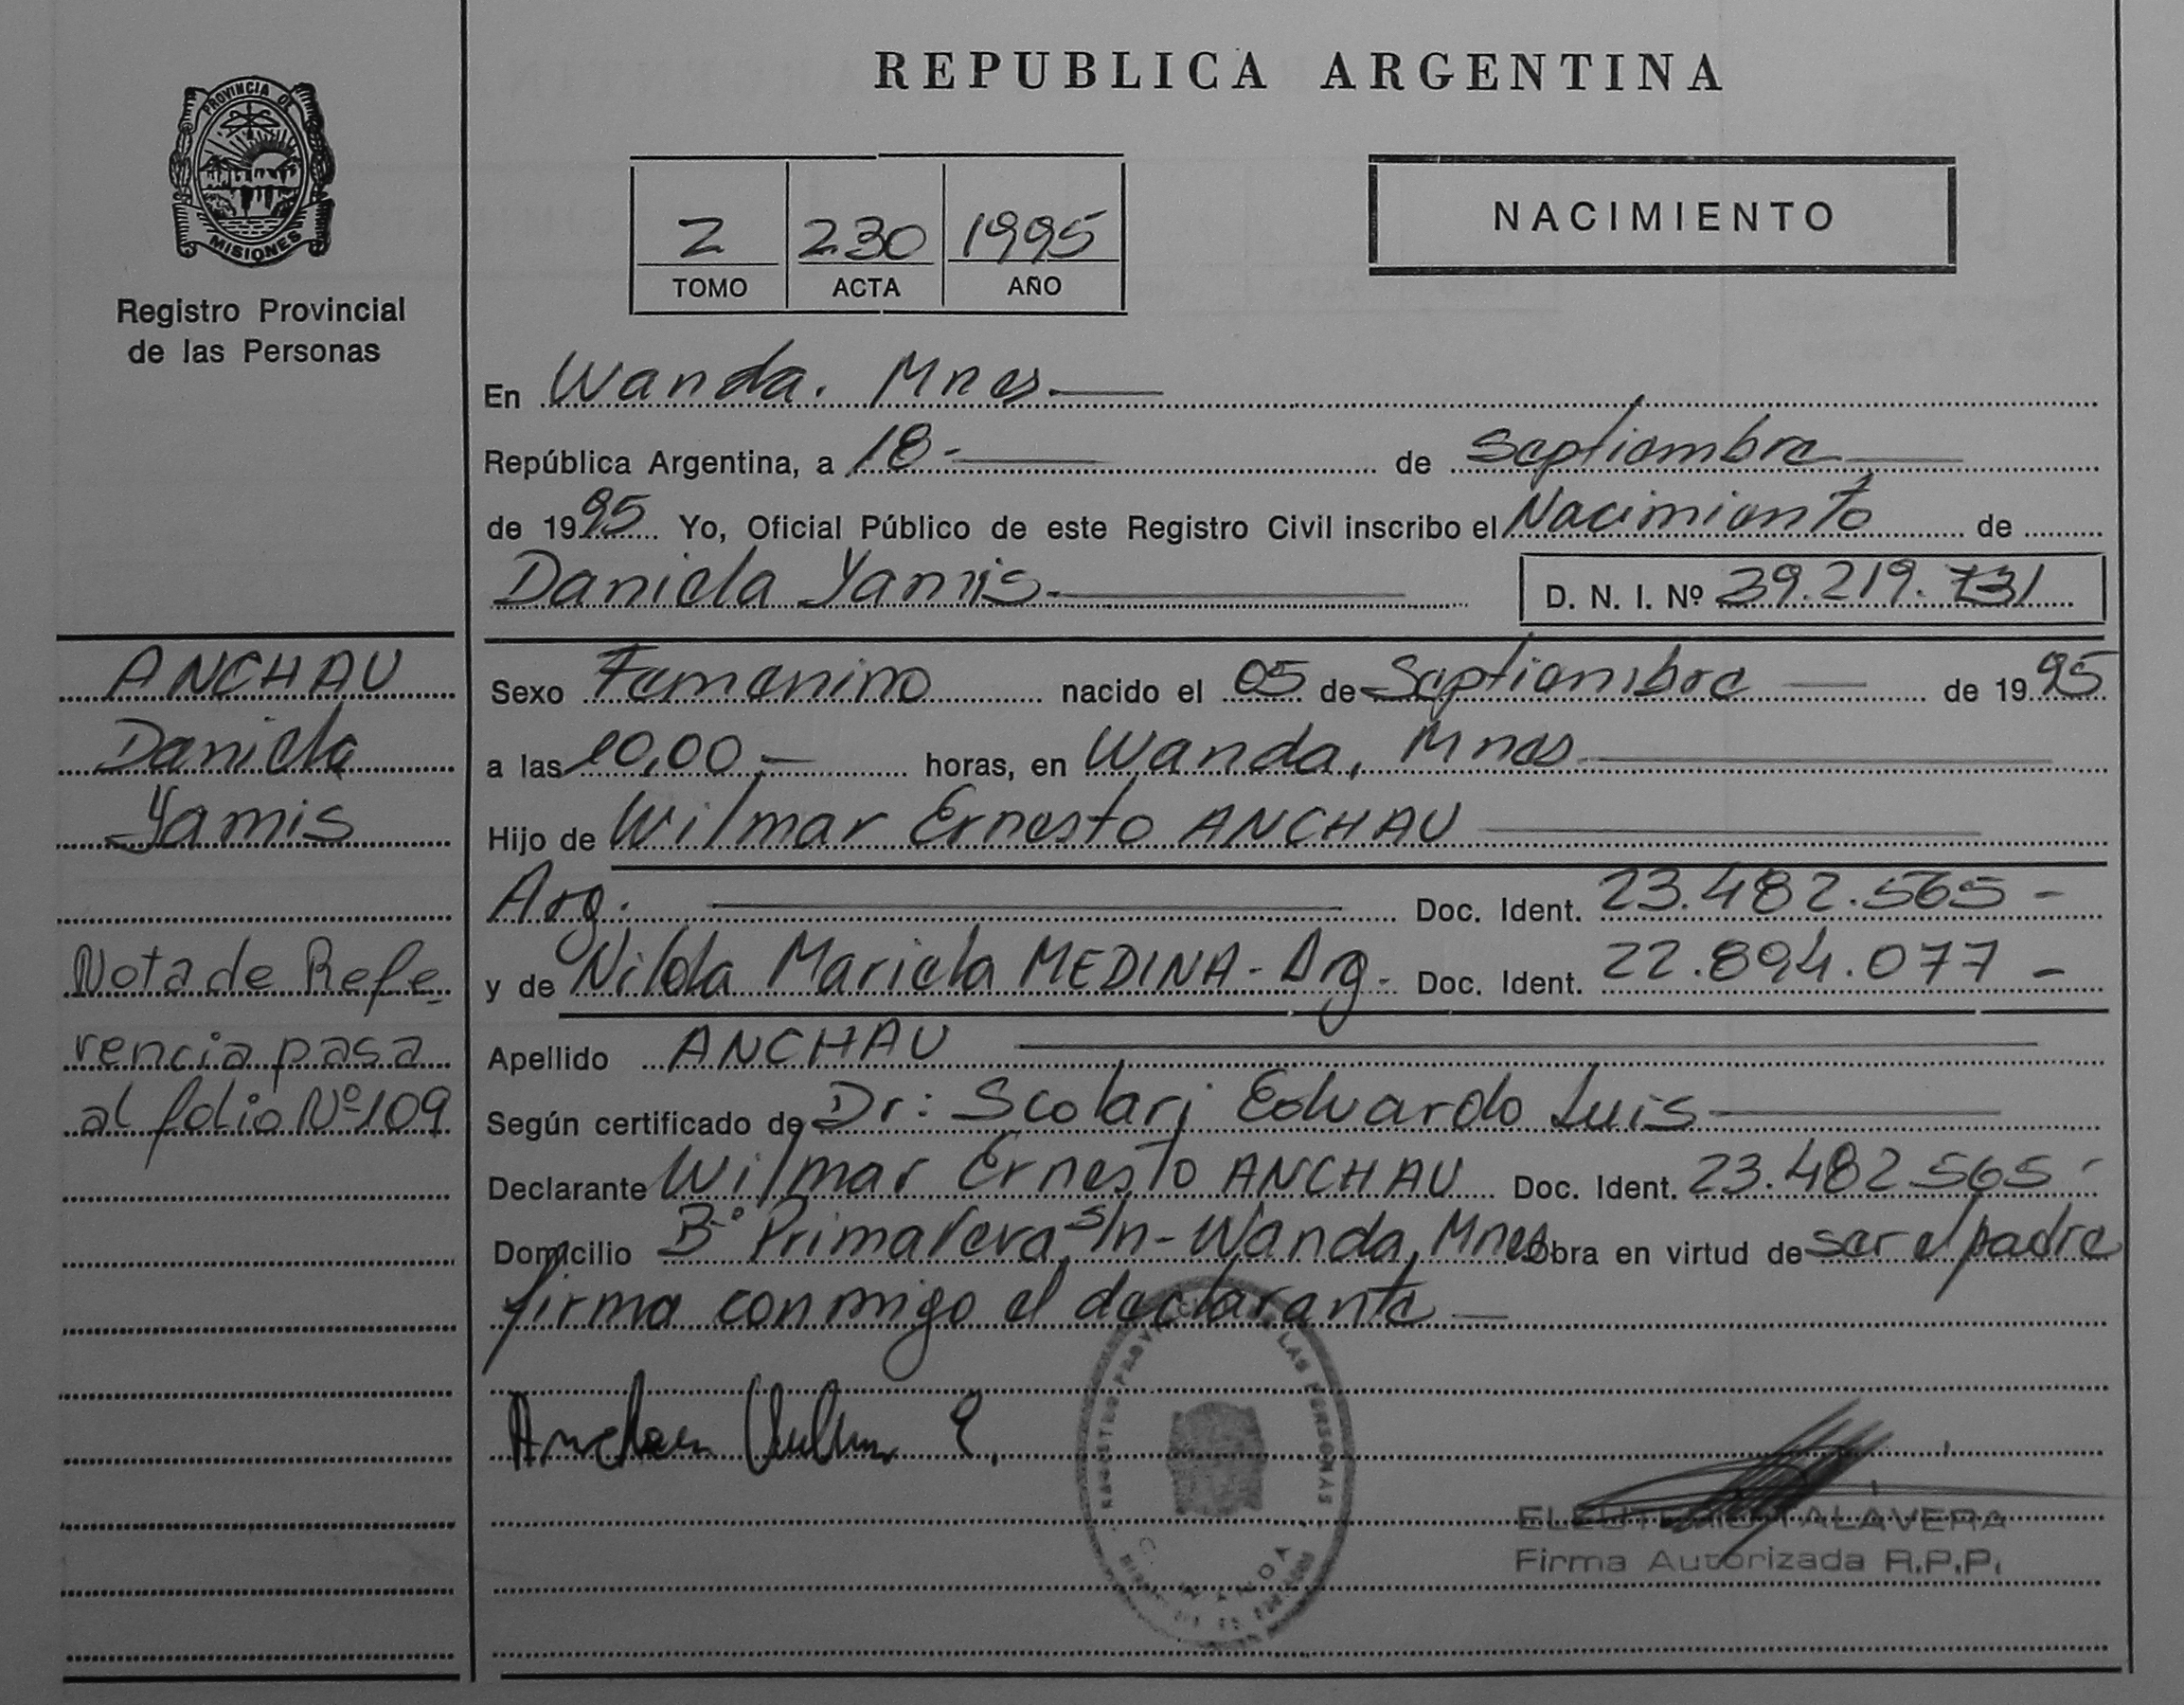 REPUBLICA ARGENTINA
PROVINCIA DE
MISIONES
Registro Provincial
de las Personas
2 230 1995
TOMO ACTA AÑO
NACIMIENTO
En Wanda. Mnes
República Argentina, a 18- de Septiembre
de 1995 Yo, Oficial Público de este Registro Civil inscribo el Nacimiento de
Daniela Yamis. D. N. I. Nº 39.219.731
ANCHAU
Daniela
Yamis
Nota de Refe-
rencia pasa
al folio Nº 109
Sexo Femenino nacido el 05 de Septiembre de 1995
a las 10,00 horas, en Wanda, Mnes
Hijo de Wilmar Ernesto ANCHAU
Arg. Doc. Ident. 23.482.565-
y de Nilda Mariela MEDINA- Arg. Doc. Ident. 22.894.077-
Apellido ANCHAU
Según certificado de Dr: Scolari Eduardo Luis
Declarante Wilmar Ernesto ANCHAU Doc. Ident. 23.482.565-
Domicilio Bº Primavera, s/n- Wanda, Mnes Obra en virtud de ser el padre
firma conmigo el declarante
Anchau E.
LAS PERSONAS
WANDA
TALAVERA
Firma Autorizada R.P.P.